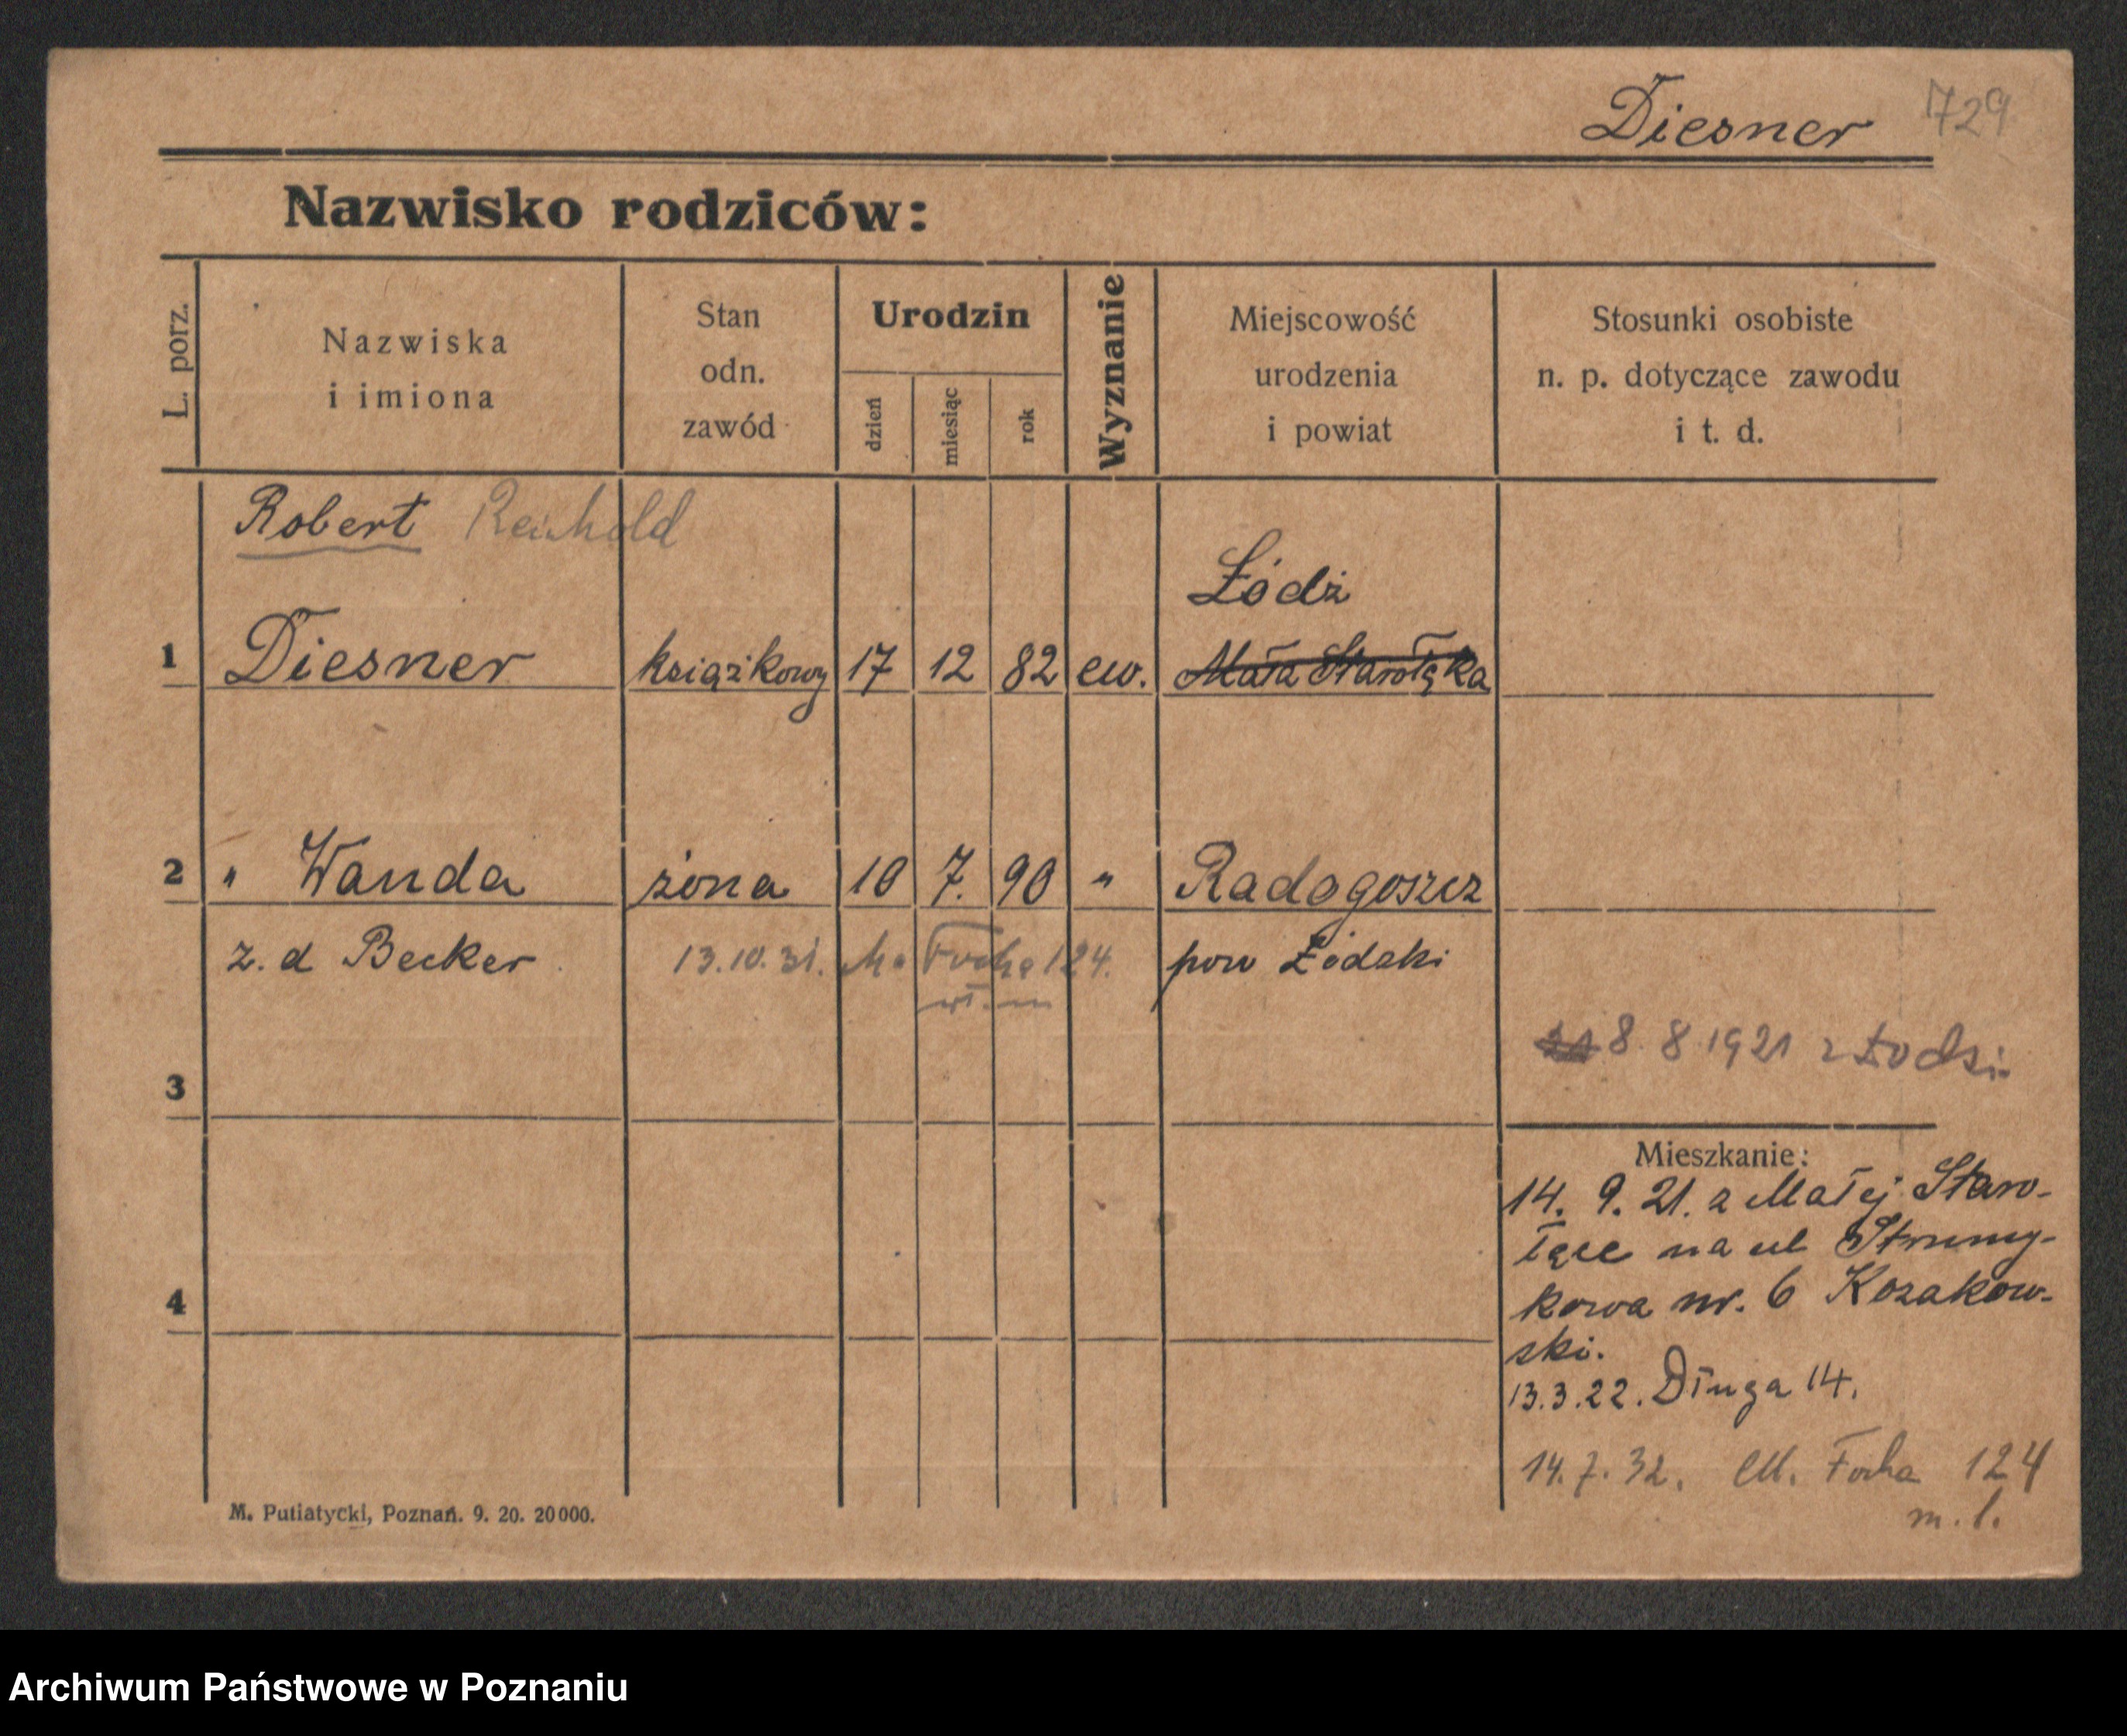 Diesner 729
Nazwisko rodziców:
L. porz.
Nazwiska
i imiona
Stan
odn.
zawód
Urodzin
dzień
miesiąc
rok
Wyznanie
Miejscowość
urodzenia
i powiat
Stosunki osobiste
n. p. dotyczące zawodu
i t. d.
Robert Reinhold
Łódź
1 Diesner książkowy 17 12 82 ew. Mała Starołęka
2 " Wanda żona 10 7. 90 " Radogoszcz
z. d Becker 13.10.31. M. Focha 124. pow Łódzki
8. 8 1921 z Łodzi
3
Mieszkanie:
14. 9. 21. z Małej Staro-
łęce na ul Strumy-
kowa nr. 6 Kozakow-
4
ski.
13.3.22. Długa 14.
14.7.32. M. Focha 124
m. 1.
M. Putiatycki, Poznań. 9. 20. 20000.
Archiwum Państwowe w Poznaniu